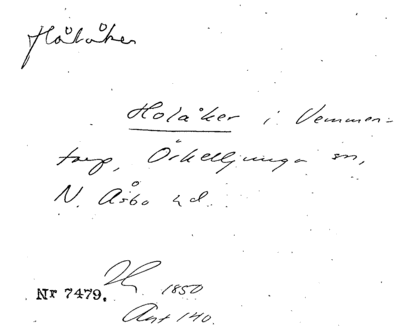 Hålåker
Holåker i Vemmen-
torp, Örkelljunga sn,
N. Åsbo hd.
Nr 7479. 1850
Ant 140.